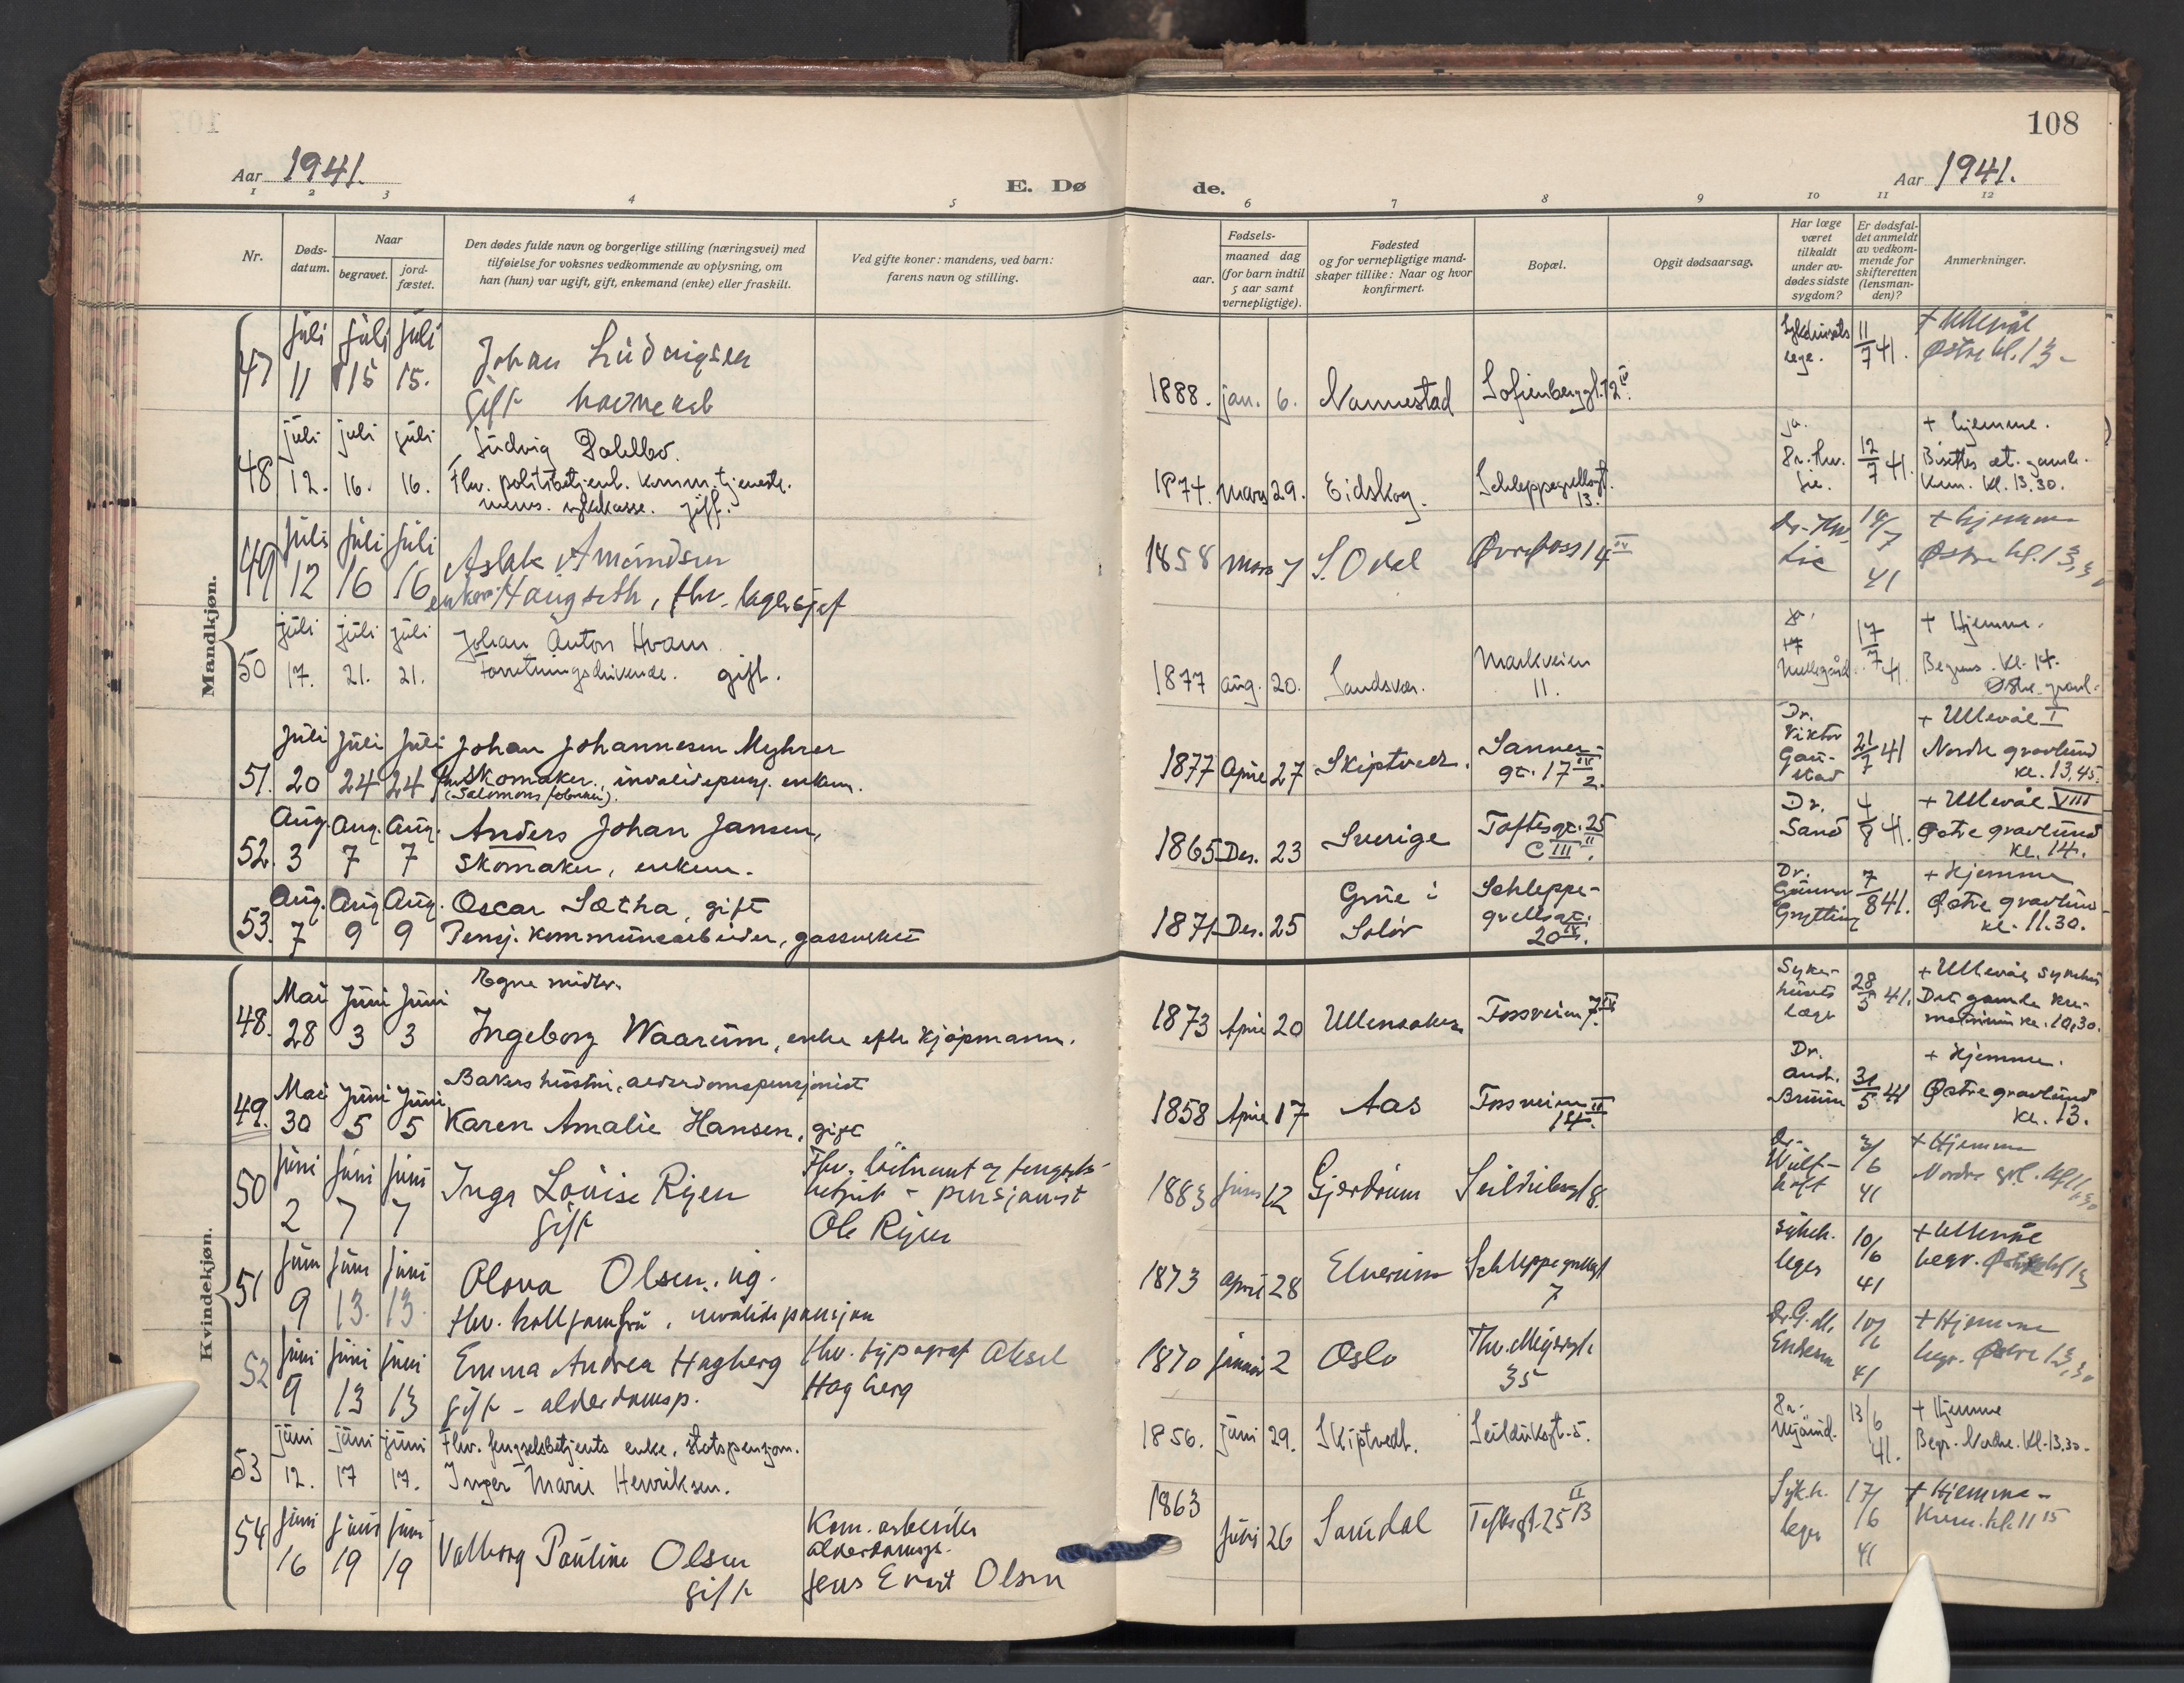 108
Aar 1941.
E. Døde.
Aar 1941.
1 2 3 4 5 6 7 8 9 10 11 12
Nr.
Døds-
datum.
Naar
begravet.
jord-
fæstet.
Den dødes fulde navn og borgerlige stilling (næringsvei) med
tilføielse for voksnes vedkommende av oplysning, om
han (hun) var ugift, gift, enkemand (enke) eller fraskilt.
Ved gifte koner: mandens, ved barn:
farens navn og stilling.
Fødsels-
aar.
maaned dag
(for barn indtil
5 aar samt
vernepligtige).
Fødested
og for vernepligtige mand-
skaper tillike: Naar og hvor
konfirmert.
Bopæl.
Opgit dødsaarsag.
Har læge
været
tilkaldt
under av-
dødes sidste
sygdom?
Er dødsfal-
det anmeldt
av vedkom-
mende for
skifteretten
(lensman-
den)?
Anmerkninger.
Mandkjøn.
47 Juli 11 Juli 15 Juli 15.
Johan Ludvigsen
gift havnearb
1888. jan. 6. Nannestad Sofienberggt. 12 IV.
Sykehusets
lege.
11/7 41.
+ Ullevål
Østre kl. 13
48 juli 12. juli 16. juli 16.
Ludvig Dahlbo.
Fhv. politibetjent. Komm. tjeneste-
menns. sykekasse. gift.
1874. mars 29. Eidskog. Schleppegrellsgt.
13.
ja.
Dr. Hw.
Lie.
12/7 41.
+ hjemme.
Bisettes det gamle
krem. kl. 13.30.
49 Juli 12 Juli 16 Juli 16
Aslak Amundsen
enkem. Haugseth, fhv. lagersjef
1858 mars 7 S. Odal Øvrefoss 14 IV
Dr. Hw.
Lie
14/7 41
+ hjemme
Østre kl. 13,30
50 juli 17. juli 21. juli 21.
Johan Anton Hvam.
Forretningsdrivende. gift.
1877 aug. 20. Sandsvær. Markveien
11.
17/7 41.
+ Hjemme.
Begraves. kl. 14.
Østre gravl.
51. Juli 20 Juli 24 Juli 24
Johan Johannesen Myhrer
fhv. skomaker, invalidepensj. enkem.
1877 April 27 Skiptvedt. Sanner-
gt. 17 IV
2.
Dr.
Viktor
Gau-
stad
21/7 41
+ Ullevål I
Nordre gravlund
kl. 13,45.
52. Aug. 3 Aug. 7 Aug. 7
Anders Johan Jansen,
Skomaker, enkem.
1865 Des. 23 Sverige Toftesgt. 25
C III II.
Dr.
Sand
4/8 41.
+ Ullevål VIII
Østre gravlund
kl. 14.
53. Aug. 7 Aug 9 Aug. 9
Oscar Sætha, gift
Pensj. kommunearbeider, gassverket
1871 Des. 25 Grue i
Solør
Schleppe-
grellsgt.
20 IV.
Dr.
Gunnar
Grytting
7/8 41.
+ Hjemme
Østre gravlund
kl. 11.30.
Kvindekjøn.
48. Mai 28 Juni 3 Juni 3
Egne midler.
Ingeborg Waarum, enke efter kjøpmann.
1873 April 20 Ullensaker Fossveien 7 IV
Syke-
husets
læge
28/5 41.
+ Ullevål sykehus
Det gamle kre-
matorium kl. 10,30.
49. Mai 30 Juni 5 Juni 5
Bakers hustru, alderdomspensjonist
Karen Amalie Hansen, gift
1858 April 17 Aas Fossveien II
14.
Dr.
Anth.
Bruun
31/5 41
+ Hjemme.
Østre gravlund
kl. 13.
50 Juni 2 Juni 7 Juni 7
Inga Lovise Rijen
gift
Fhv. løitnant og fengsels-
betjent - pensjonist
Ole Rijen
1883 Juni 12 Gjerdrum Seilduksgt 8.
Dr.
Wulf-
hoft
3/6 41
+ Hjemme
Nordre grl. kl 11,30
51 Juni 9 Juni 13. Juni 13.
Olova Olsen, ug.
fhv. kolljomfru, invalidepensjon
1873 April 28 Elverum Schleppegrellsgt
7
sykeh.
leges
10/6 41
+ Ullevål
begr. Østre kl 13
52 Juni 9 Juni 13 Juni 13
Emma Andrea Hagberg
gift - alderdomsp.
fhv. typograf Aksel
Hagberg
1870 januar 2 Oslo Thv. Meyersgt.
35
10/6 41
+ Hjemme
begr. Østre 13,30
53 juni 12. juni 17 juni 17.
Fhv. fengselsbetjents enke, statspensjon.
Inger Marie Henriksen.
1856. juni 29. Skiptvedt. Seilduksgt. 5.
Dr.
13/6 41.
+ Hjemme
Begr. Nordre. kl. 13.30.
54 Juni 16 Juni 19 Juni 19
Valborg Pauline Olsen
gift
Kom. arbeider
alderdomsp.
Jens Evart Olsen
1863 Juni 26 Saudal Toftesgt. 25 B II
Sykh.
leges
17/6 41
+ Hjemme
Krem. kl. 11 15